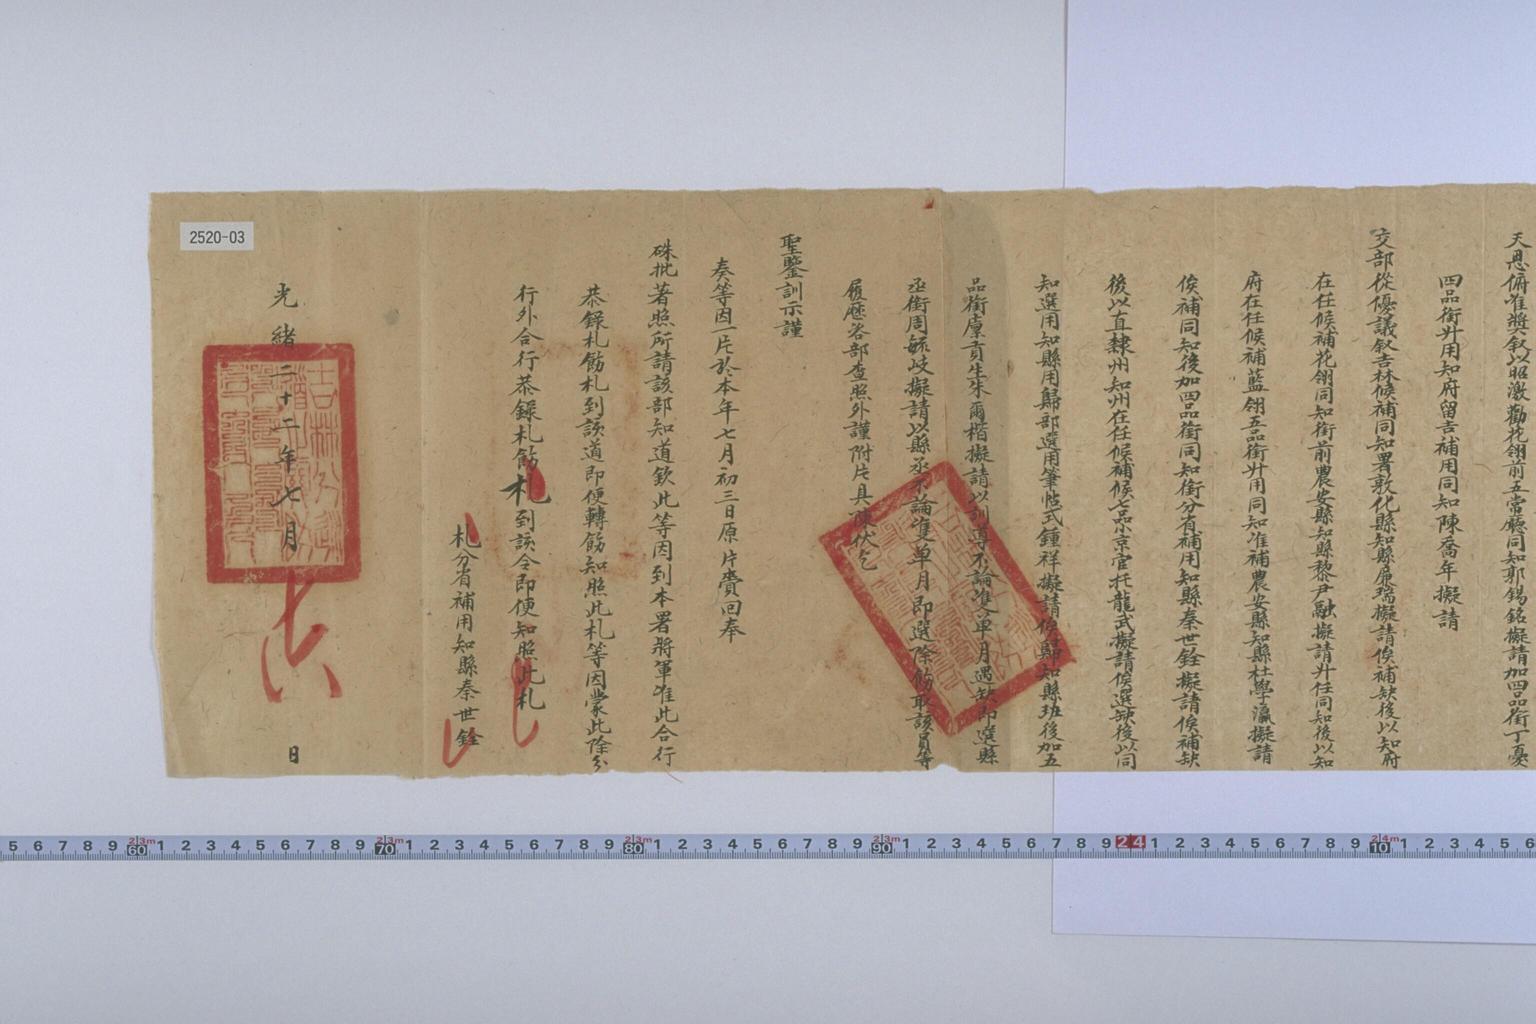 天恩俯准獎敘以昭激勸花翎前五常廳同知郭錫銘擬請加四品銜丁憂
四品銜升用知府留吉補用同知陳喬年擬請
交部從優議敘吉林候補同知署敦化縣知縣廉瑞擬請俟補缺後以知府
在任候補花翎同知銜前農安縣知縣黎尹融擬請升任同知後以知
府在任候補藍翎五品銜升用同知准補農安縣知縣杜學瀛擬請
俟補同知後加四品銜同知銜分省補用知縣秦世銓擬請俟補缺
後以直隸州知州在任候補候七品小京官托龍武擬請俟選缺後以同
知選用知縣用歸部選用筆帖式鍾祥擬請俟歸知縣班後加五
品銜廩貢生朱爾楷擬請以訓導不論雙單月遇缺即選縣
丞銜周毓岐擬請以縣丞不論雙單月即選除飭取該員等
履歷咨部查照外謹附片具陳伏乞
聖鑒訓示謹
奏等因一片於本年七月初三日原片賫回奉
硃批著照所請該部知道欽此等因到本署將軍准此合行
恭錄札飭札到該道即便轉飭知照此札等因蒙此除分
行外合行恭錄札飭札到該令即便知照此札
札分省補用知縣秦世銓
光緒二十二年七月 日
2520-03
5 6 7 8 9 60 1 2 3 4 5 6 7 8 9 70 1 2 3 4 5 6 7 8 9 80 1 2 3 4 5 6 7 8 9 90 1 2 3 4 5 6 7 8 9 24 1 2 3 4 5 6 7 8 9 10 1 2 3 4 5 6